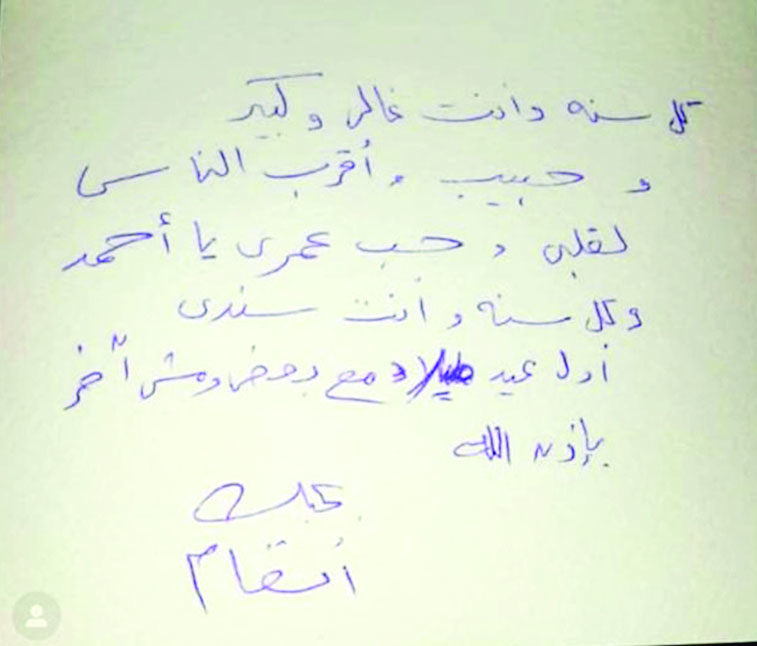 كل سنه وانت غالى وكبير
و حبيب و أقرب الناس
لقلبى و حب عمرى يا أحمد
وكل سنه و أنت سندى
أول عيد ميلاد مع بعض ومش آخر
بإذن الله
بحبك
أنغام